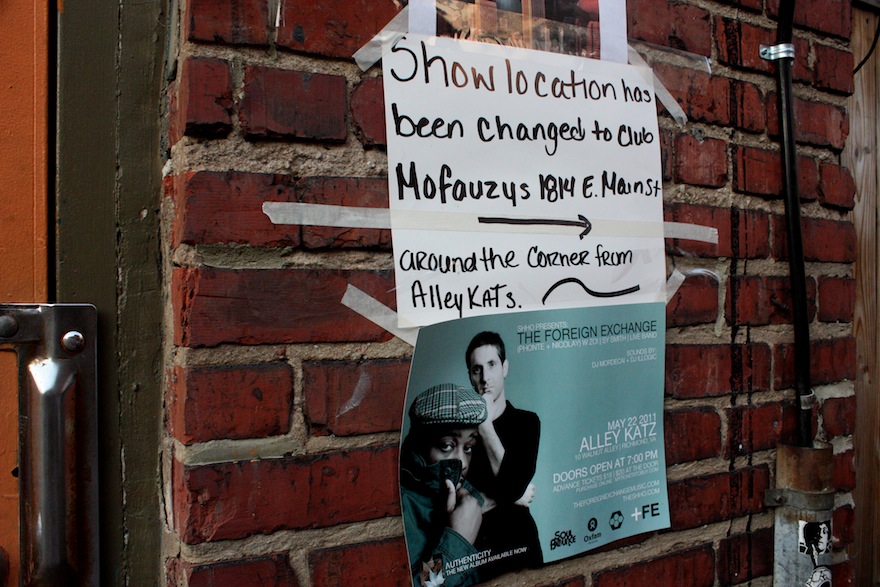 Show location has
been changed to Club
Mofauzys 1814 E. Main St
around the corner from
Alley KATs.
SHHO PRESENTS:
THE FOREIGN EXCHANGE
(PHONTE + NICOLAY) W ZO! | SY SMITH | LIVE BAND
SOUNDS BY:
DJ MORDECAI + DJ ILLOGIC
MAY 22 2011
ALLEY KATZ
10 WALNUT ALLEY | RICHMOND, VA
DOORS OPEN AT 7:00 PM
ADVANCE TICKETS $18 | $20 AT THE DOOR
PURCHASE ONLINE
THEFOREIGNEXCHANGEMUSIC.COM
THESHHO.COM
Oxfam
+FE
AUTHENTICITY
THE NEW ALBUM AVAILABLE NOW